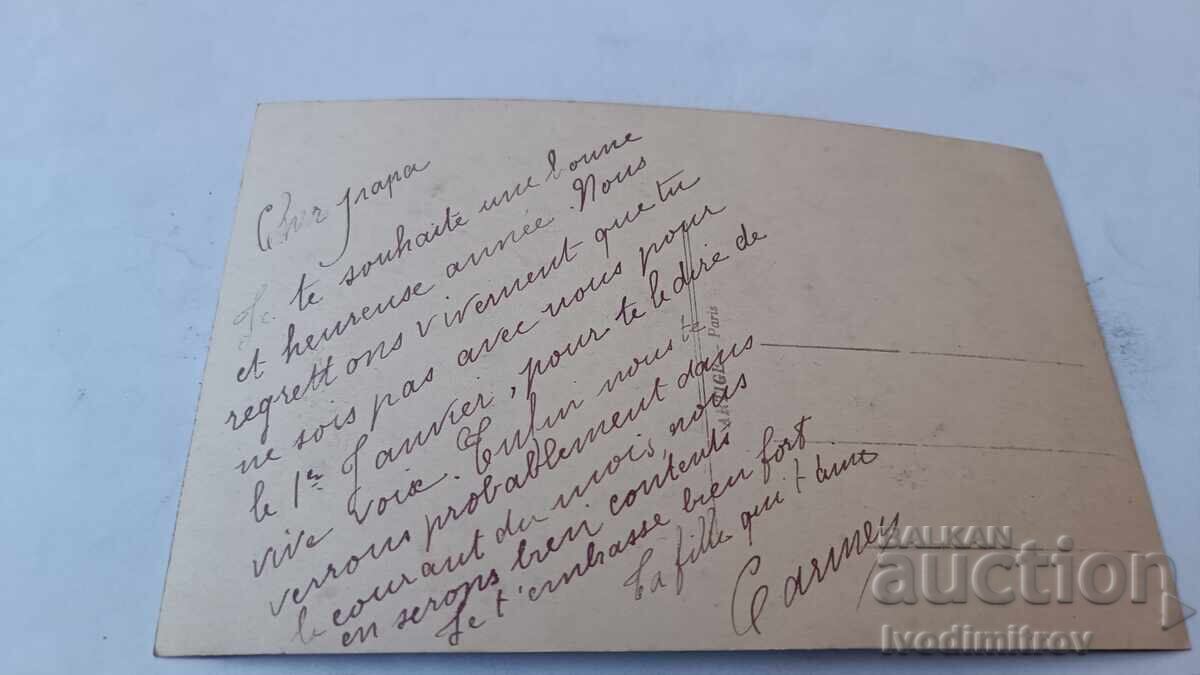 Cher papa
Je te souhaite une bonne
et heureuse année. Nous
regrettons vivement que tu
ne sois pas avec nous pour
le 1er Janvier, pour te le dire de
vive voix. Enfin nous te
verrons probablement dans
le courant du mois, nous
en serons bien contents
Je t'embrasse bien fort
Ta fille qui t'aime
Carmen
Paris
BALKAN
auction
Ivodimitrov